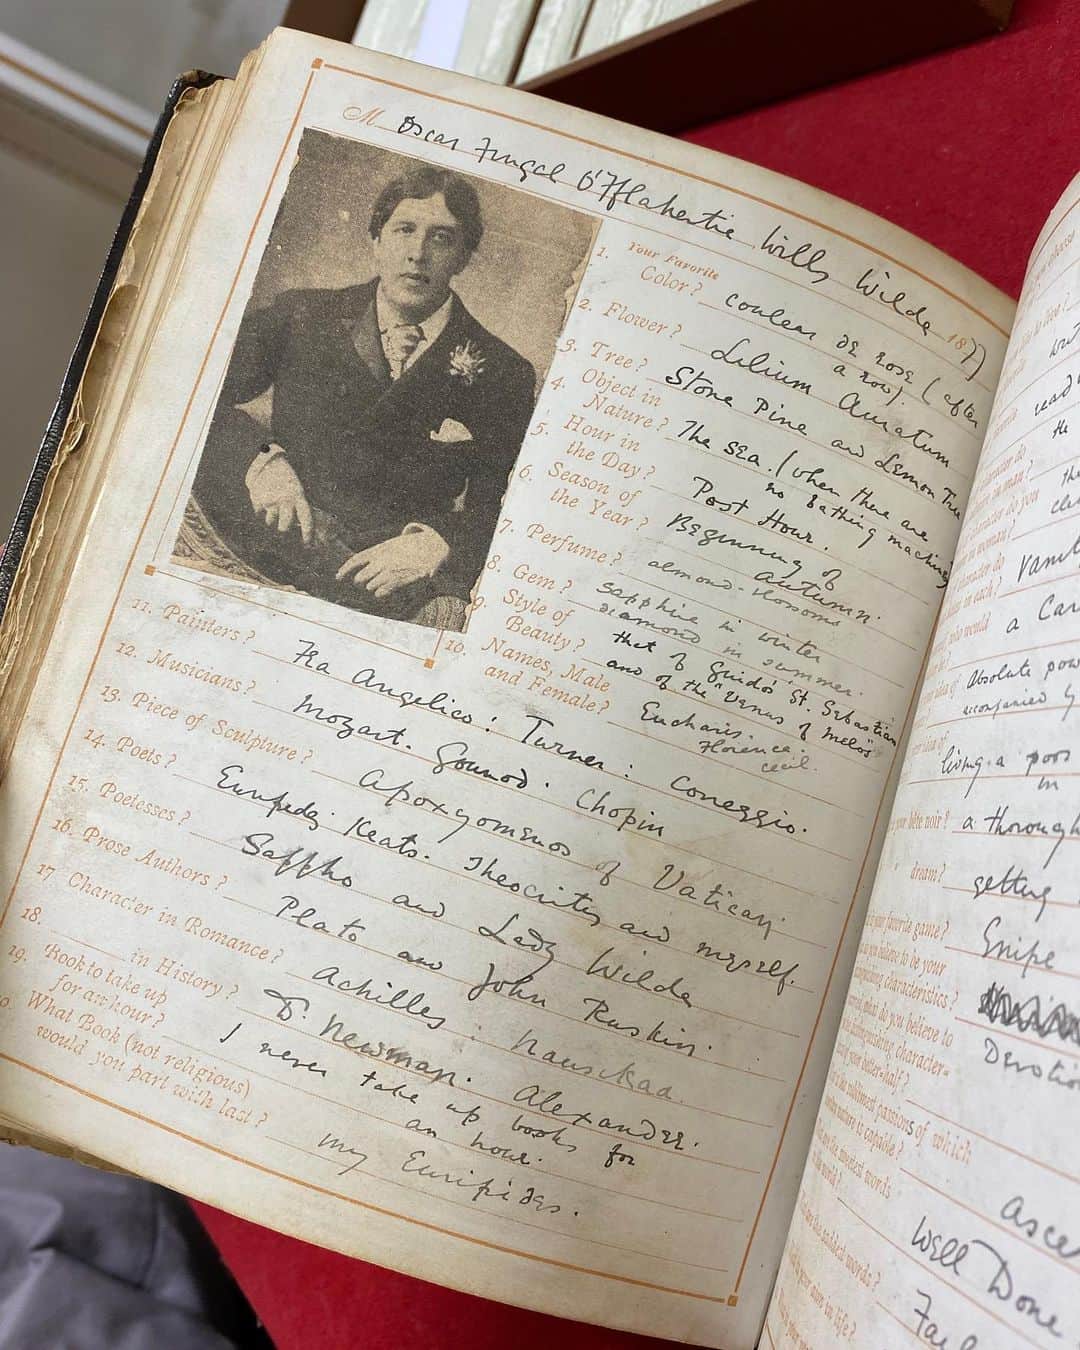 M Oscar Fingal O'Fflahertie Wills Wilde 1877
Your Favorite
1. Color? couleur de rose (after
a row).
2. Flower? Lilium Auratum
3. Tree? Stone Pine and Lemon Tree
4. Object in
Nature? The sea. (when there are
no bathing machines
5. Hour in
the Day? Post Hour.
6. Season of
the Year? Beginning of
autumn.
7. Perfume? almond-blossoms
8. Gem? Sapphire in winter
diamond in summer.
9. Style of
Beauty? that of Guido's St. Sebastian
and of the "Venus of Melos"
10. Names, Male
and Female? Eucharis.
Florence.
Cecil.
11. Painters? Fra Angelico: Turner: Coreggio.
12. Musicians? Mozart. Gounod. Chopin
13. Piece of Sculpture? Apoxyomenos of Vatican
14. Poets? Euripides. Keats. Theocritus and myself.
15. Poetesses? Sappho and Lady Wilde
16. Prose Authors? Plato and John Ruskin.
17 Character in Romance? Achilles. Nausikaa.
18. in History? Dr. Newman. Alexander.
19. Book to take up
for an hour? I never take up books for
an hour.
What Book (not religious)
would you part with last? my Euripides.
read
the
vanity
a Car
Absolute pow
accompanied by
living a poor
in
bête noir? a thorough
dream? getting
your favorite game? Snipe
believe to be your
characteristics?
what do you believe to
distinguishing character-
your better-half?
sublimest passions of which
nature is capable? asce
the sweetest words
world? Well Done
the saddest words? Fail
aim in life?